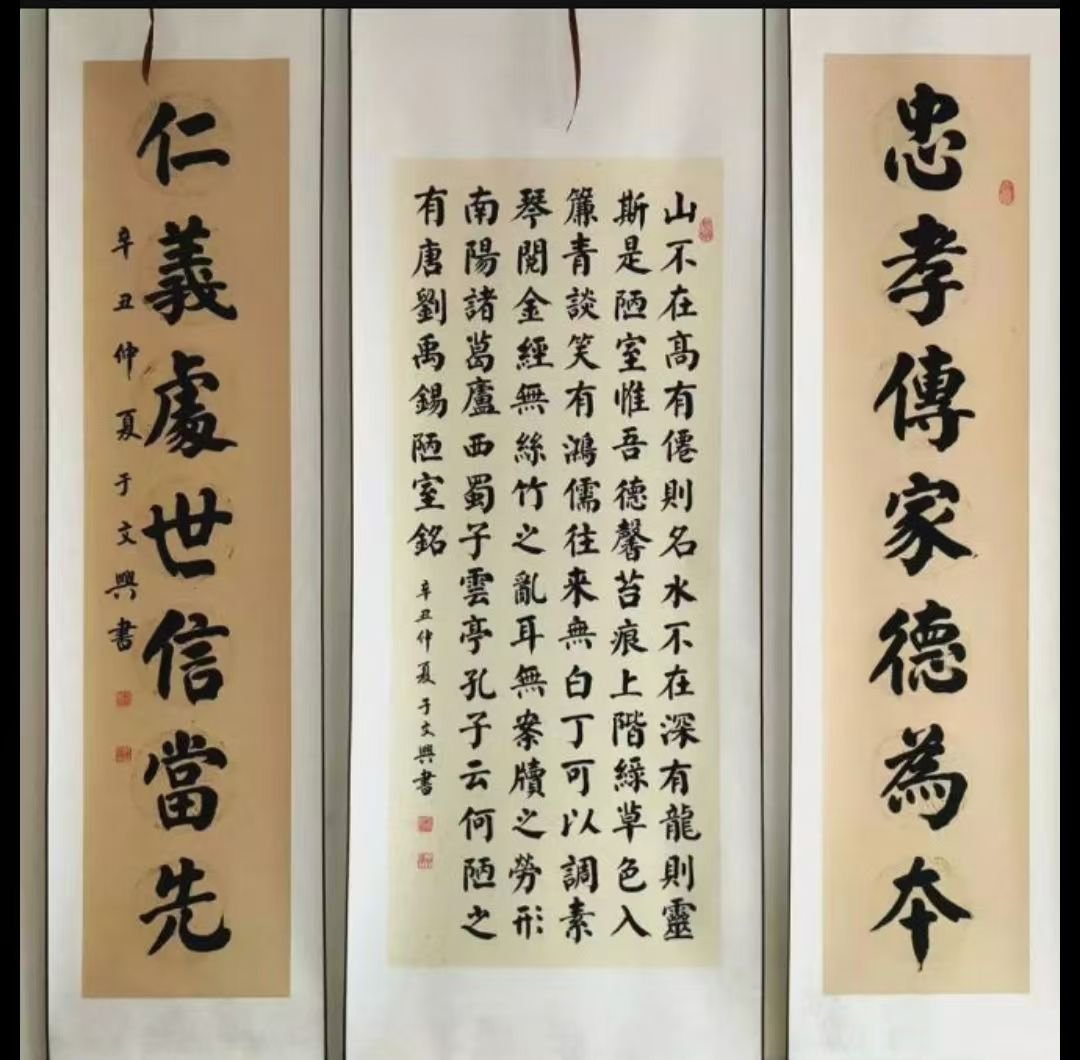 忠孝傳家德為本
山不在高有僊則名水不在深有龍則靈
斯是陋室惟吾德馨苔痕上階綠草色入
簾青談笑有鴻儒往來無白丁可以調素
琴閱金經無絲竹之亂耳無案牘之勞形
南陽諸葛廬西蜀子雲亭孔子云何陋之
有唐劉禹錫陋室銘
辛丑仲夏于文興書
仁義處世信當先
辛丑仲夏于文興書